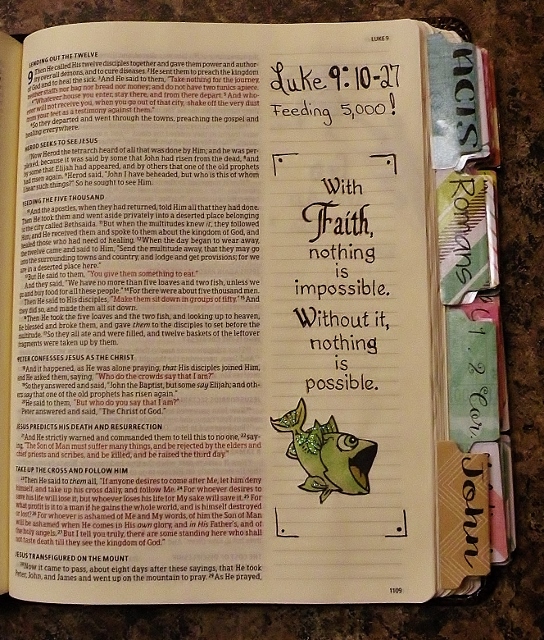 LUKE 9
SENDING OUT THE TWELVE
9 Then He called His twelve disciples together and gave them power and author-
over all demons, and to cure diseases. 2 He sent them to preach the kingdom
of God and to heal the sick. 3 And He said to them, "Take nothing for the journey,
neither staffs nor bag nor bread nor money; and do not have two tunics apiece.
4 "Whatever house you enter, stay there, and from there depart. 5 And who-
ever will not receive you, when you go out of that city, shake off the very dust
from your feet as a testimony against them."
6 So they departed and went through the towns, preaching the gospel and
healing everywhere.
HEROD SEEKS TO SEE JESUS
7 Now Herod the tetrarch heard of all that was done by Him; and he was per-
plexed, because it was said by some that John had risen from the dead, 8 and
by some that Elijah had appeared, and by others that one of the old prophets
had risen again. 9 Herod said, "John I have beheaded, but who is this of whom
I hear such things?" So he sought to see Him.
FEEDING THE FIVE THOUSAND
10 And the apostles, when they had returned, told Him all that they had done.
Then He took them and went aside privately into a deserted place belonging
to the city called Bethsaida. 11 But when the multitudes knew it, they followed
Him; and He received them and spoke to them about the kingdom of God, and
healed those who had need of healing. 12 When the day began to wear away,
the twelve came and said to Him, "Send the multitude away, that they may go
into the surrounding towns and country, and lodge and get provisions; for we
are in a deserted place here."
13 But He said to them, "You give them something to eat."
And they said, "We have no more than five loaves and two fish, unless we
go and buy food for all these people." 14 For there were about five thousand men.
Then He said to His disciples, "Make them sit down in groups of fifty." 15 And
they did so, and made them all sit down.
16 Then He took the five loaves and the two fish, and looking up to heaven,
He blessed and broke them, and gave them to the disciples to set before the
multitude. 17 So they all ate and were filled, and twelve baskets of the leftover
fragments were taken up by them.
PETER CONFESSES JESUS AS THE CHRIST
18 And it happened, as He was alone praying, that His disciples joined Him,
and He asked them, saying, "Who do the crowds say that I am?"
19 So they answered and said, "John the Baptist, but some say Elijah; and oth-
ers say that one of the old prophets has risen again."
20 He said to them, "But who do you say that I am?"
Peter answered and said, "The Christ of God."
JESUS PREDICTS HIS DEATH AND RESURRECTION
21 And He strictly warned and commanded them to tell this to no one, 22 say-
ing, "The Son of Man must suffer many things, and be rejected by the elders and
chief priests and scribes, and be killed, and be raised the third day."
TAKE UP THE CROSS AND FOLLOW HIM
23 Then He said to them all, "If anyone desires to come after Me, let him deny
himself, and take up his cross daily, and follow Me. 24 For whoever desires to
save his life will lose it, but whoever loses his life for My sake will save it. 25 For
what profit is it to a man if he gains the whole world, and is himself destroyed
or lost? 26 For whoever is ashamed of Me and My words, of him the Son of Man
will be ashamed when He comes in His own glory, and in His Father's, and of
the holy angels. 27 But I tell you truly, there are some standing here who shall
not taste death till they see the kingdom of God."
JESUS TRANSFIGURED ON THE MOUNT
28 Now it came to pass, about eight days after these sayings, that He took
Peter, John, and James and went up on the mountain to pray. 29 As He prayed,
1109
Luke 9:10-27
Feeding 5,000!
With
Faith,
nothing
is
impossible.
Without it,
nothing
is
possible.
Romans
1 . 2 Cor
John